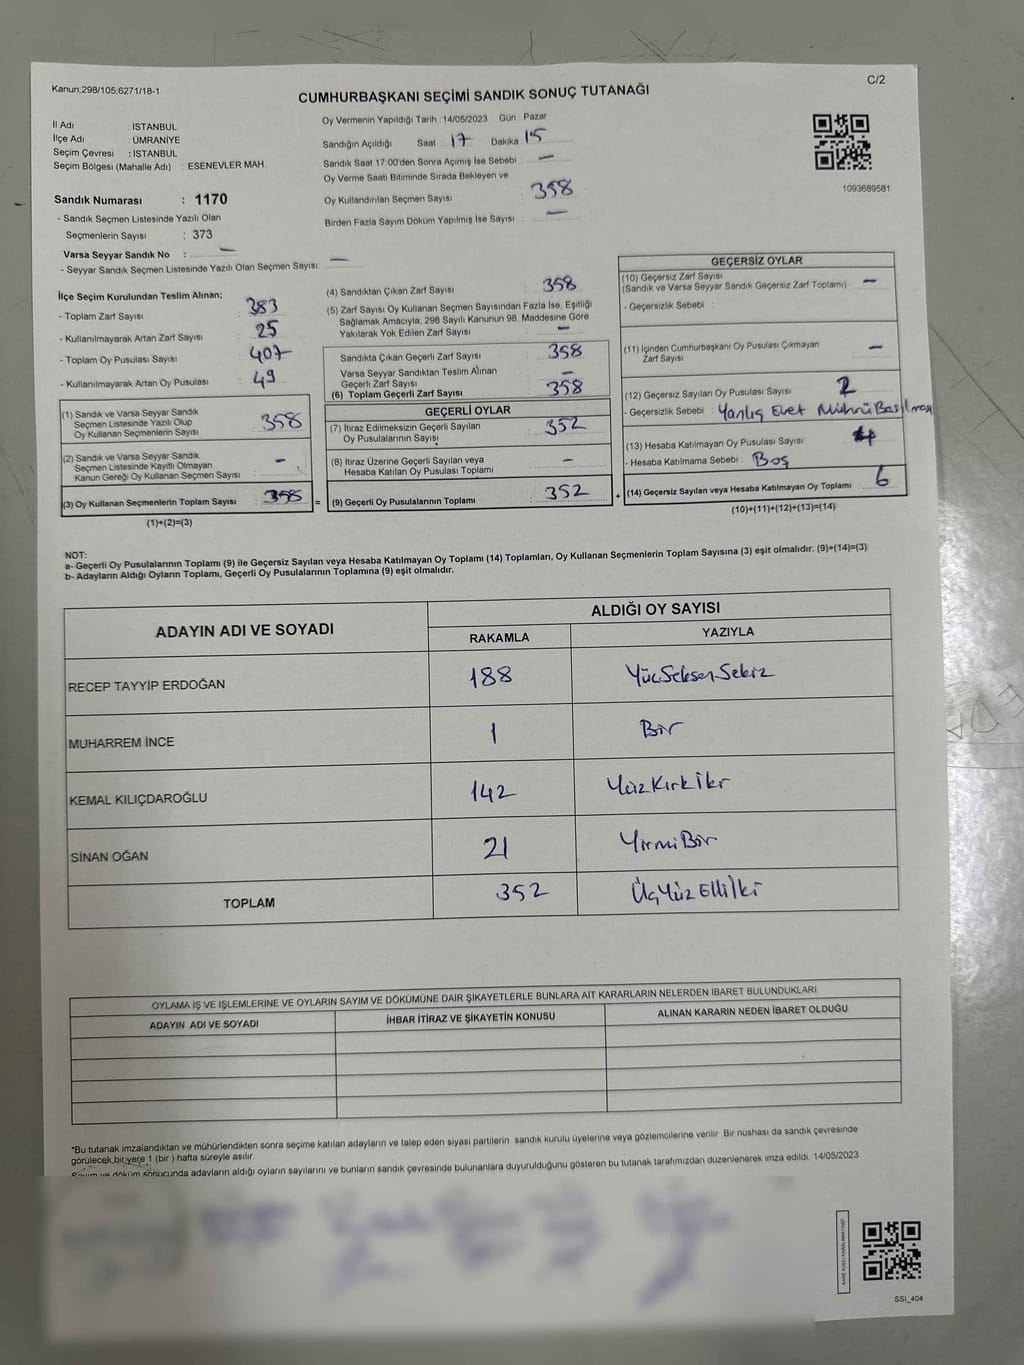 Kanun;298/105,6271/18-1
C/2
CUMHURBAŞKANI SEÇİMİ SANDIK SONUÇ TUTANAĞI
İl Adı : İSTANBUL
İlçe Adı : ÜMRANİYE
Seçim Çevresi : İSTANBUL
Seçim Bölgesi (Mahalle Adı) : ESENEVLER MAH.
Sandık Numarası : 1170
- Sandık Seçmen Listesinde Yazılı Olan
Seçmenlerin Sayısı : 373
Varsa Seyyar Sandık No : -
- Seyyar Sandık Seçmen Listesinde Yazılı Olan Seçmen Sayısı: -
Oy Vermenin Yapıldığı Tarih : 14/05/2023 Gün : Pazar
Sandığın Açıldığı Saat : 17 Dakika : 15
Sandık Saat 17:00'den Sonra Açımış İse Sebebi : -
Oy Verme Saati Bitiminde Sırada Bekleyen ve
Oy Kullandırılan Seçmen Sayısı : 358
Birden Fazla Sayım Döküm Yapılmış İse Sayısı : -
1093689581
İlçe Seçim Kurulundan Teslim Alınan;
- Toplam Zarf Sayısı : 383
- Kullanılmayarak Artan Zarf Sayısı : 25
- Toplam Oy Pusulası Sayısı : 407
- Kullanılmayarak Artan Oy Pusulası : 49
(1) Sandık ve Varsa Seyyar Sandık
Seçmen Listesinde Yazılı Olup
Oy Kullanan Seçmenlerin Sayısı : 358
(2) Sandık ve Varsa Seyyar Sandık
Seçmen Listesinde Kayıtlı Olmayan
Kanun Gereği Oy Kullanan Seçmen Sayısı : -
(3) Oy Kullanan Seçmenlerin Toplam Sayısı : 358 =
(1)+(2)=(3)
(4) Sandıktan Çıkan Zarf Sayısı : 358
(5) Zarf Sayısı Oy Kullanan Seçmen Sayısından Fazla İse, Eşitliği
Sağlamak Amacıyla, 298 Sayılı Kanunun 98. Maddesine Göre
Yakılarak Yok Edilen Zarf Sayısı : -
Sandıkta Çıkan Geçerli Zarf Sayısı : 358
Varsa Seyyar Sandıktan Teslim Alınan
Geçerli Zarf Sayısı : -
(6) Toplam Geçerli Zarf Sayısı : 358
GEÇERLİ OYLAR
(7) İtiraz Edilmeksizin Geçerli Sayılan
Oy Pusulalarının Sayısı : 352
(8) İtiraz Üzerine Geçerli Sayılan veya
Hesaba Katılan Oy Pusulası Toplamı : -
(9) Geçerli Oy Pusulalarının Toplamı : 352 +
GEÇERSİZ OYLAR
(10) Geçersiz Zarf Sayısı :
(Sandık ve Varsa Seyyar Sandık Geçersiz Zarf Toplamı) -
- Geçersizlik Sebebi :
(11) İçinden Cumhurbaşkanı Oy Pusulası Çıkmayan
Zarf Sayısı : -
(12) Geçersiz Sayılan Oy Pusulası Sayısı : 2
- Geçersizlik Sebebi : Yanlış Evet Mührü Basılması
(13) Hesaba Katılmayan Oy Pusulası Sayısı : 4
- Hesaba Katılmama Sebebi : Boş
(14) Geçersiz Sayılan veya Hesaba Katılmayan Oy Toplamı : 6
(10)+(11)+(12)+(13)=(14)
NOT:
a- Geçerli Oy Pusulalarının Toplamı (9) ile Geçersiz Sayılan veya Hesaba Katılmayan Oy Toplamı (14) Toplamları, Oy Kullanan Seçmenlerin Toplam Sayısına (3) eşit olmalıdır. (9)+(14)=(3)
b- Adayların Aldığı Oyların Toplamı, Geçerli Oy Pusulalarının Toplamına (9) eşit olmalıdır.
ADAYIN ADI VE SOYADI
ALDIĞI OY SAYISI
RAKAMLA YAZIYLA
RECEP TAYYİP ERDOĞAN 188 YüzSeksenSekiz
MUHARREM İNCE 1 Bir
KEMAL KILIÇDAROĞLU 142 YüzKırkİki
SİNAN OĞAN 21 YirmiBir
TOPLAM 352 ÜçYüzElliİki
OYLAMA İŞ VE İŞLEMLERİNE VE OYLARIN SAYIM VE DÖKÜMÜNE DAİR ŞİKAYETLERLE BUNLARA AİT KARARLARIN NELERDEN İBARET BULUNDUKLARI
ADAYIN ADI VE SOYADI İHBAR İTİRAZ VE ŞİKAYETİN KONUSU ALINAN KARARIN NEDEN İBARET OLDUĞU
*Bu tutanak imzalandıktan ve mühürlendikten sonra seçime katılan adayların ve talep eden siyasi partilerin sandık kurulu üyelerine veya gözlemcilerine verilir. Bir nüshası da sandık çevresinde
görülecek bir yere 1 (bir ) hafta süreyle asılır.
Sayım ve döküm sonucunda adayların aldığı oyların sayılarını ve bunların sandık çevresinde bulunanlara duyurulduğunu gösteren bu tutanak tarafımızdan düzenlenerek imza edildi. 14/05/2023
KARE KODU KARALAMAYINIZ!
SSI_404